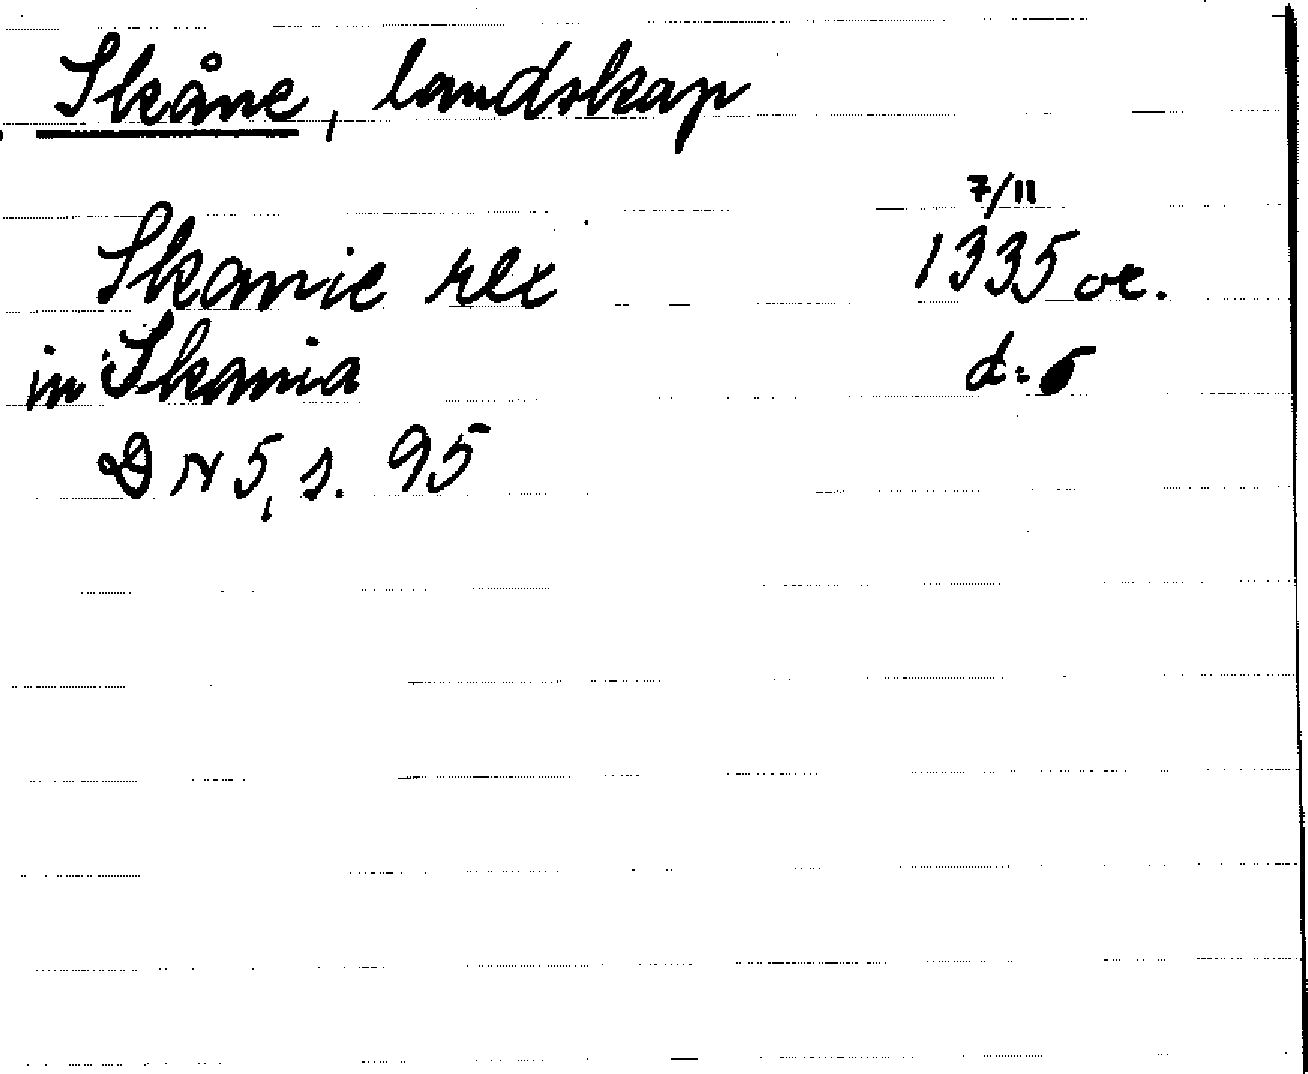 Skåne, landskap
7/11
Skanie rex 1335 or.
in Skania d:o
DN 5, s. 95